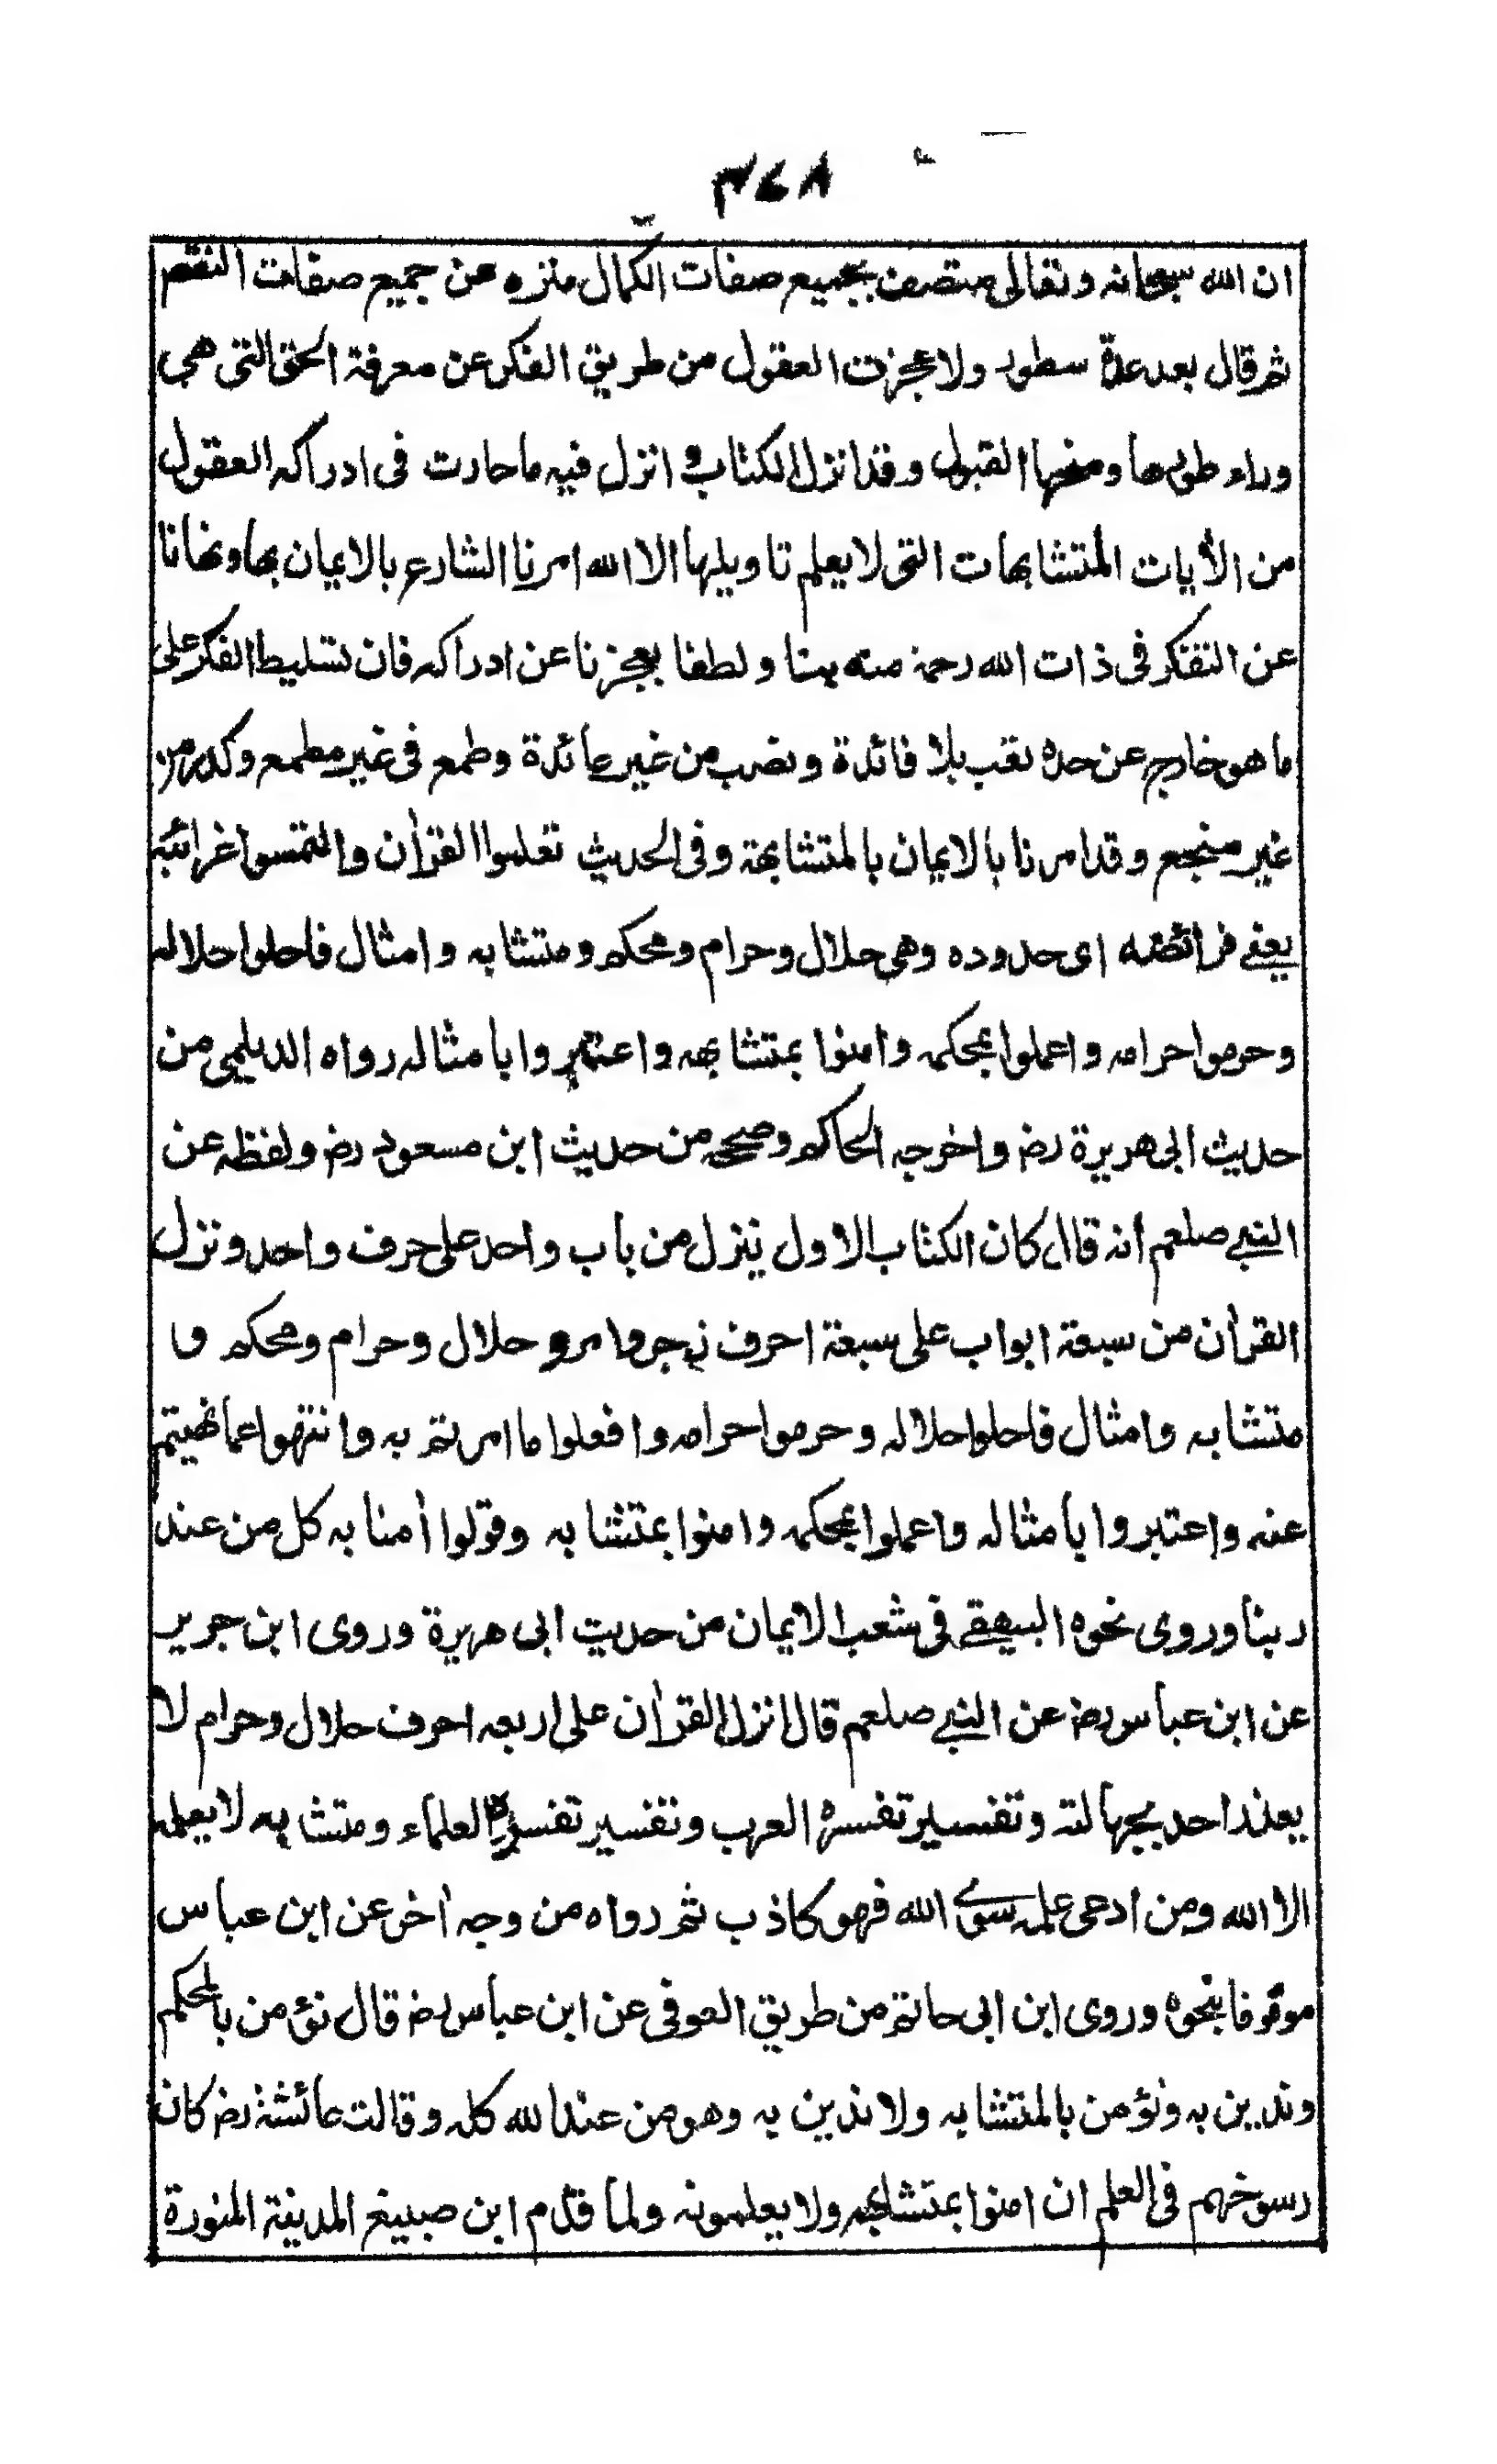 ٣٤٨
ان الله سبحانه وتعالى متصف بجميع صفات الكمال منزه عن جميع صفات النقص
ثم قال بعد عدة سطور ولا عجزت العقول من طريق الفكر عن معرفة الحق التى هى
وراء طورها ومنحها القبول وقد انزل الكتاب و انزل فيه ما حارت فى ادراكه العقول
من الأيات المتشابهات التى لا يعلم تاويلها الا الله امرنا الشارع بالايمان بها ونهانا
عن التفكر فى ذات الله رحمة منه بنا ولطفا بعجزنا عن ادراكه فان تسليط الفكر على
ما هو خارج عن حده تعب بلا فائدة ونصب من غير عائدة وطمع فى غير مطمع وكد من
غير منجع وقد امرنا بالايمان بالمتشابهة وفى الحديث تعلموا القرأن والتمسوا غرائبه
يعنى فرائضه اى حدوده وهى حلال وحرام ومحكم ومتشابه وامثال فاحلوا حلاله
وحرموا حرامه واعملوا بمحكمه وامنوا بمتشابهه واعتبروا بامثاله رواه الديلمى من
حديث ابى هريرة رض واخرجه الحاكم وصححه من حديث ابن مسعود رض ولفظه عن
النبى صلعم انه قال كان الكتاب الاول ينزل من باب واحد على حرف واحد ونزل
القرأن من سبعة ابواب على سبعة احرف زجر وامر و حلال وحرام ومحكم و
متشابه وامثال فاحلوا حلاله وحرموا حرامه وافعلوا ما امرتم به وانتهوا عما نهيتم
عنه واعتبروا بامثاله واعملوا بمحكمه وامنوا بمتشابه وقولوا أمنا به كل من عند
ربنا وروى نحوه البيهقى فى شعب الايمان من حديث ابى هريرة وروى ابن جرير
عن ابن عباس رض عن النبى صلعم قال انزل القرأن على اربعه احرف حلال وحرام لا
يعذر احد بجهالته وتفسير تفسره العرب وتفسير تفسره العلماء ومتشابه لا يعلمه
الا الله ومن ادعى علمه سوى الله فهو كاذب ثم رواه من وجه أخر عن ابن عباس
موقوفا بنحوه وروى ابن ابى حاتم من طريق العوفى عن ابن عباس رض قال نؤمن بالمحكم
وندين به ونؤمن بالمتشابه ولا ندين به وهو من عند الله كله وقالت عائشة رض كان
رسوخهم فى العلم ان امنوا بمتشابهه ولا يعلمونه ولما قدم ابن صبيغ المدينة المنورة